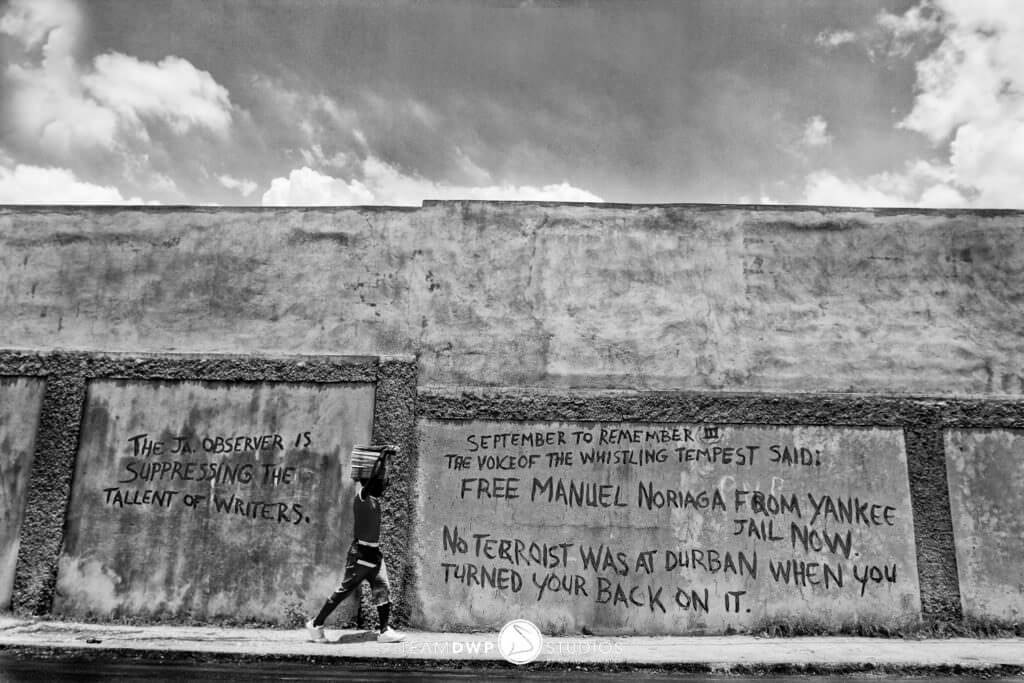 THE JA. OBSERVER IS
SUPPRESSING THE
TALLENT OF WRITERS.
SEPTEMBER TO REMEMBER III
THE VOICE OF THE WHISTLING TEMPEST SAID:
FREE MANUEL NORIAGA FROM YANKEE
JAIL NOW.
NO TERROIST WAS AT DURBAN WHEN YOU
TURNED YOUR BACK ON IT.
TEAMDWP STUDIOS